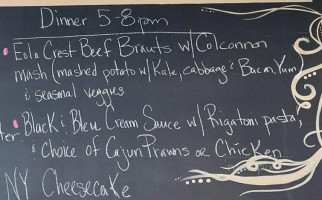 Dinner 5-8pm
Eola Crest Beef Brauts w/ Colcannon
mash (mashed potato w/ Kale, cabbage & Bacon, Yum)
& seasonal veggies
ter. Black & Bleu Cream Sauce w/ Rigatoni pasta,
& choice of Cajun Prawns or Chicken
NY Cheesecake